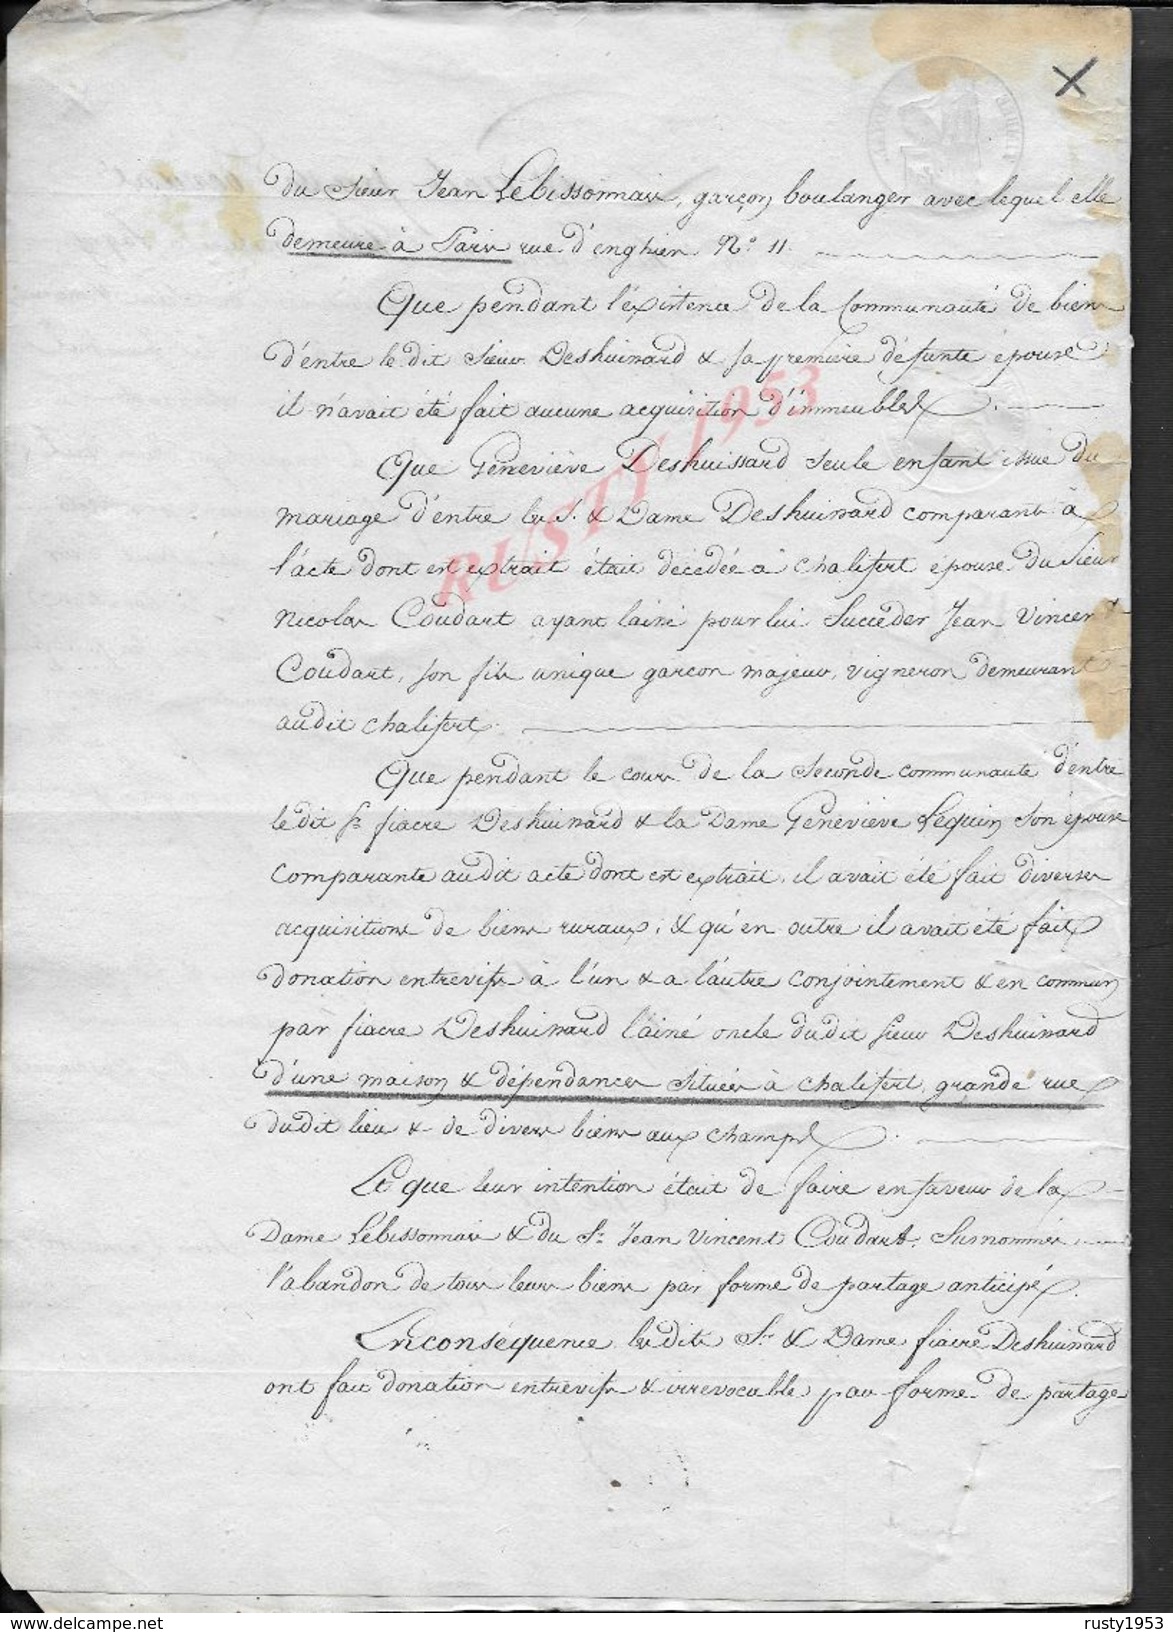 du Sieur Jean Lebissonnais, garçon boulanger avec lequel elle
demeure à Paris rue d'enghien N.º 11.
Que pendant l'existence de la Communauté de biens
d'entre le dit Sieur Deshuissard & sa première défunte épouse
il n'avait été fait aucune acquisition d'immeubles.
Que Geneviève Deshuissard seule enfant issue du
mariage d'entre les S. & Dame Deshuissard comparant à
l'acte dont est extrait était décédée à Chalifert épouse du Sieur
Nicolas Coudart ayant laissé pour lui Succéder Jean Vincent
Coudart, son fils unique garçon majeur, vigneron demeurant
audit Chalifert.
Que pendant le cours de la Seconde communauté d'entre
le dit Sr fiacre Deshuissard & la Dame Geneviève Lequin Son épouse
comparante audit acte dont est extrait, il avait été fait diverses
acquisitions de biens ruraux; & qu'en outre il avait été fait
donation entrevifs à l'un & a l'autre conjointement & en commun
par fiacre Deshuissard l'ainé oncle dudit Sieur Deshuissard
d'une maison & dépendances situées à Chalifert, grande rue
dudit lieu & de divers biens aux champs.
Et que leur intention était de faire en faveur de la
Dame Lebissonnais & du Sr Jean Vincent Coudart, Surnommés
l'abandon de tous leurs biens par forme de partage anticipé.
En conséquence les dits Sr & Dame fiacre Deshuissard
ont fait donation entrevifs & irrevocable par forme de partage
RUSTY 1953
delcampe.net
rusty1953